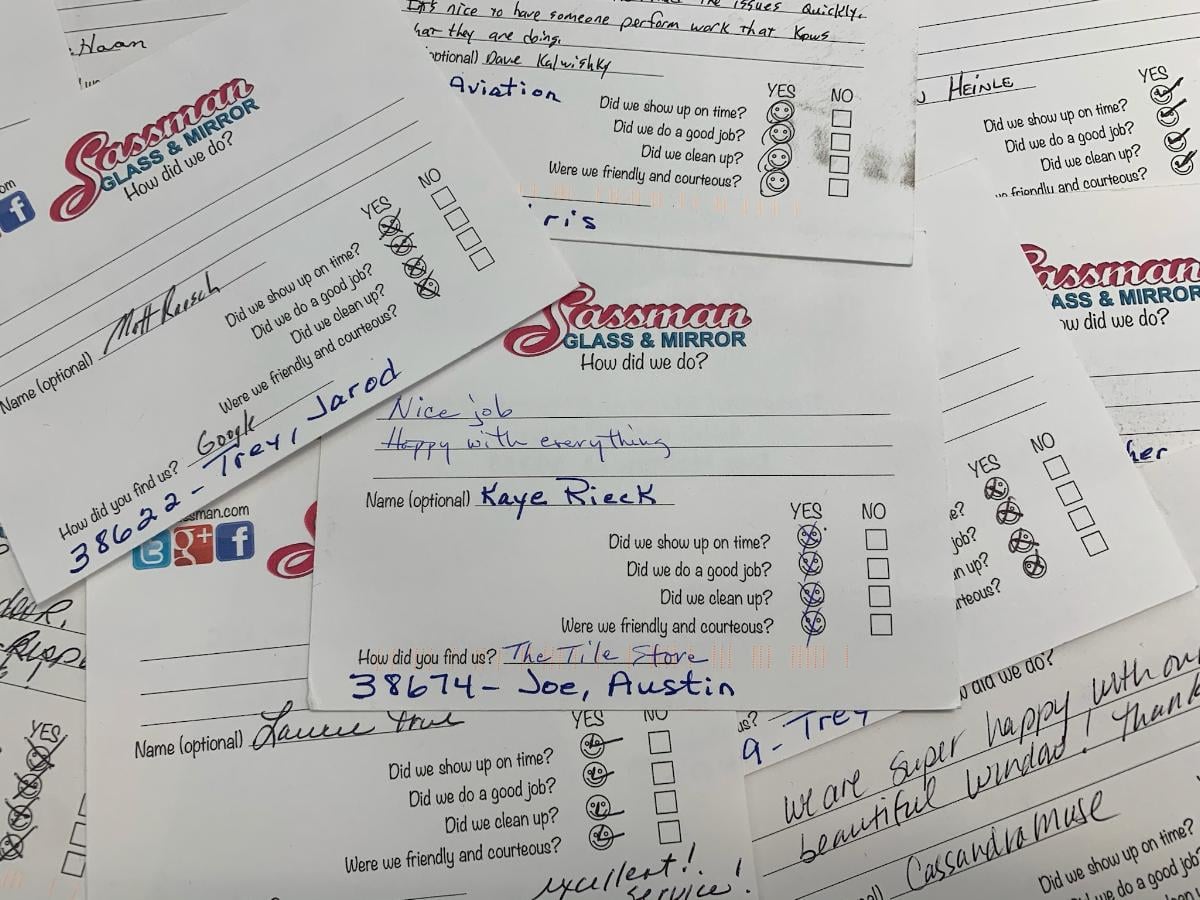 Haan
Sassman
GLASS & MIRROR
How did we do?
YES NO
Did we show up on time?
Did we do a good job?
Did we clean up?
Were we friendly and courteous?
Name (optional) Matt Raesch
How did you find us? Google
38622 - Trey, Jarod
issues quickly.
It's nice to have someone perform work that Kows
they are doing.
Dave Kalwishky
Aviation
YES NO
Did we show up on time?
Did we do a good job?
Did we clean up?
Were we friendly and courteous?
HEINLE
YES
Did we show up on time?
Did we do a good job?
Did we clean up?
friendly and courteous?
Sassman
GLASS & MIRROR
How did we do?
Nice job
Happy with everything
Name (optional) Kaye Rieck
YES NO
Did we show up on time?
Did we do a good job?
Did we clean up?
Were we friendly and courteous?
How did you find us? The Tile Store
38674 - Joe, Austin
assman
ASS & MIRROR
did we do?
YES NO
job?
up?
sman.com
g+ f
Name (optional) Laurie
YES NO
Did we show up on time?
Did we do a good job?
Did we clean up?
Were we friendly and courteous?
excellent!
service!
YES
us?
9 - Trey
did we do?
we are super happy with our
beautiful window! Thank
Cassandra Muse
Did we show up on time?
we do a good job?